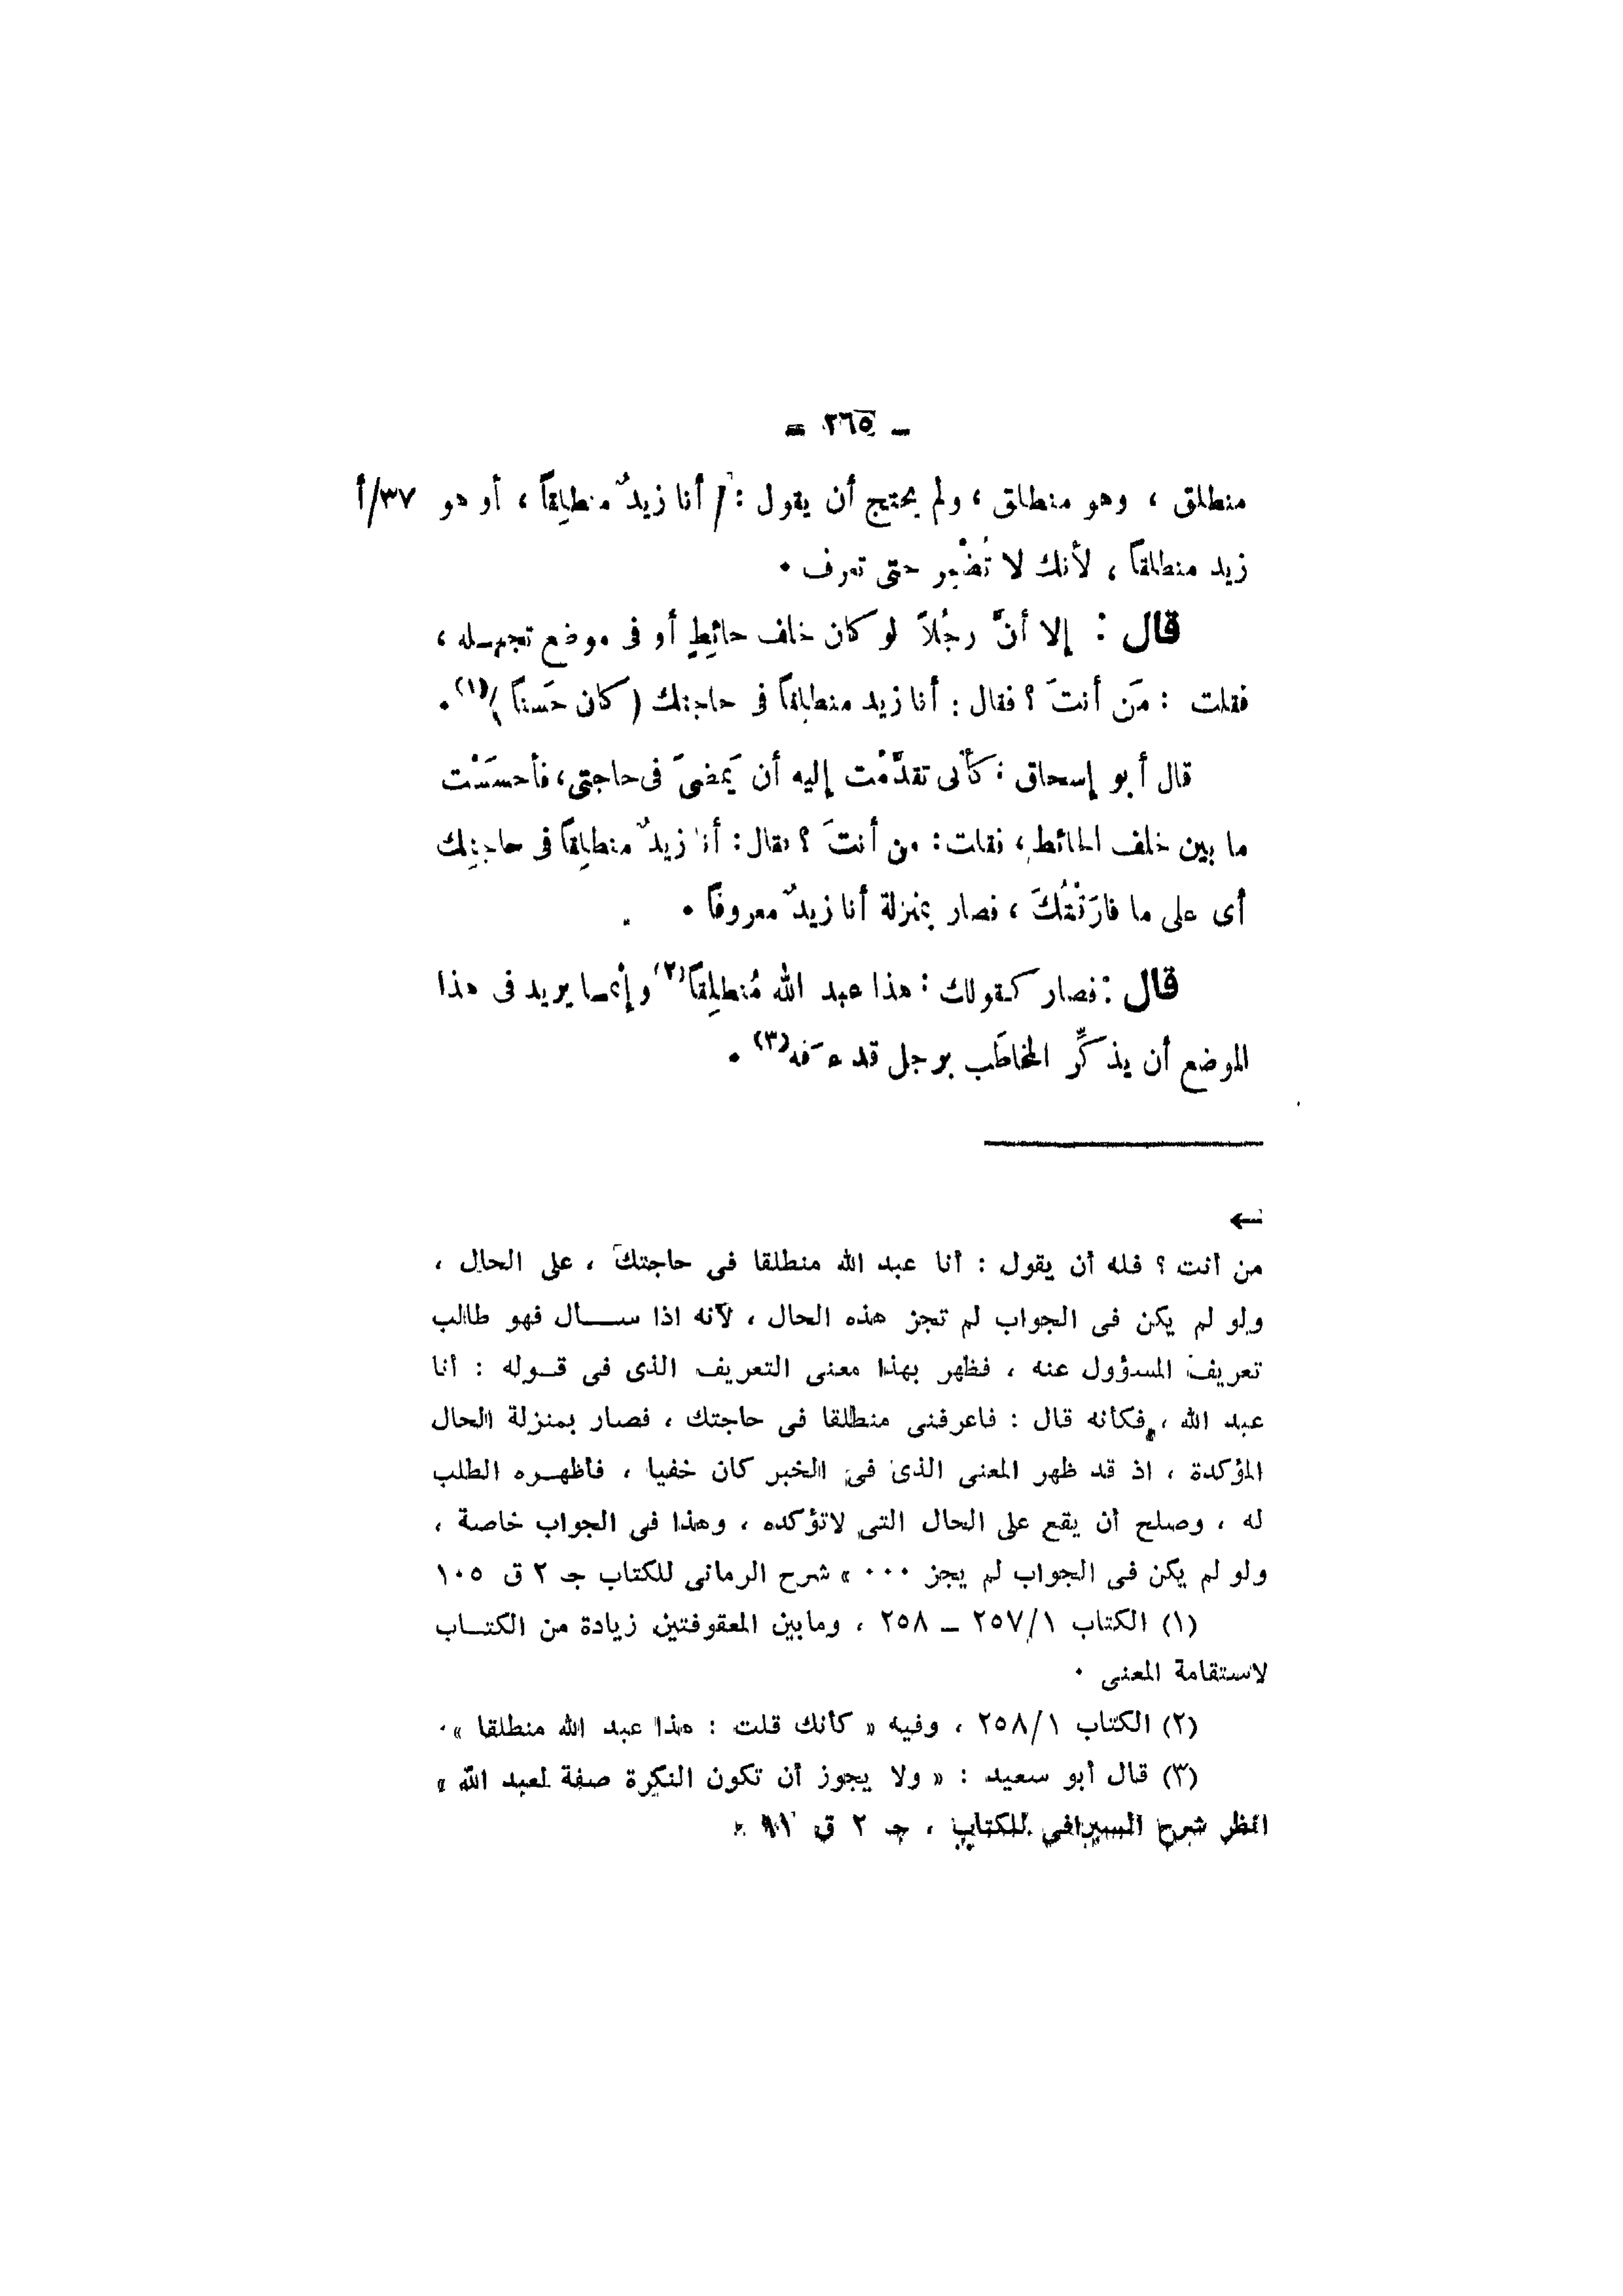 ـ ٢٦٥ ـ
منطلق ، وهو منطلق ، ولم يحتج أن يقول : / أنا زيدٌ منطلِقاً ، أو هو ٣٧/أ
زيد منطلقاً ، لأنك لا تُضْمِر حتى تعرف .
قال : إلا أنَّ رجُلاً لو كان خلف حائِطٍ أو فى موضع تجهـله ،
فقلت : مَن أنتَ ؟ فقال : أنا زيد منطلِقاً فى حاجتك ( كان حَسناً )(١) .
قال أبو إسحاق : كأنى تقدَّمْت إليه أن يَمضىَ فى حاجتى ، فأحسَسْت
ما بين خلف الحائط ، فقلت : من أنتَ ؟ فقال : أنا زيدٌ منطلِقاً فى حاجتِك
أى على ما فارَقْتُكَ ، فصار بمنزلة أنا زيدٌ معروفاً .
قال : فصار كـقولك : هذا عبد الله مُنطلِقاً(٢) وإنمـا يريد فى هذا
الموضع أن يذكِّر المخاطَب برجل قد عرَفه(٣) .
←
من أنت ؟ فله أن يقول : أنا عبد الله منطلقا فى حاجتك ، على الحال ،
ولو لم يكن فى الجواب لم تجز هذه الحال ، لأنه اذا ســـأل فهو طالب
تعريف المسؤول عنه ، فظهر بهذا معنى التعريف الذى فى قـوله : أنا
عبد الله ، فكأنه قال : فاعرفنى منطلقا فى حاجتك ، فصار بمنزلة الحال
المؤكدة ، اذ قد ظهر المعنى الذى فى الخبر كان خفيا ، فأظهـره الطلب
له ، وصلح أن يقع على الحال التى لاتؤكده ، وهذا فى الجواب خاصة ،
ولو لم يكن فى الجواب لم يجز ٠٠٠ » شرح الرمانى للكتاب جـ ٢ ق ١٠٥
(١) الكتاب ٢٥٧/١ ـ ٢٥٨ ، ومابين المعقوفتين زيادة من الكتـاب
لاستقامة المعنى .
(٢) الكتاب ٢٥٨/١ ، وفيه « كأنك قلت : هذا عبد الله منطلقا » .
(٣) قال أبو سعيد : « ولا يجوز أن تكون النكرة صفة لعبد الله »
انظر شرح السيرافى للكتاب ، جـ ٢ ق ٩١ .